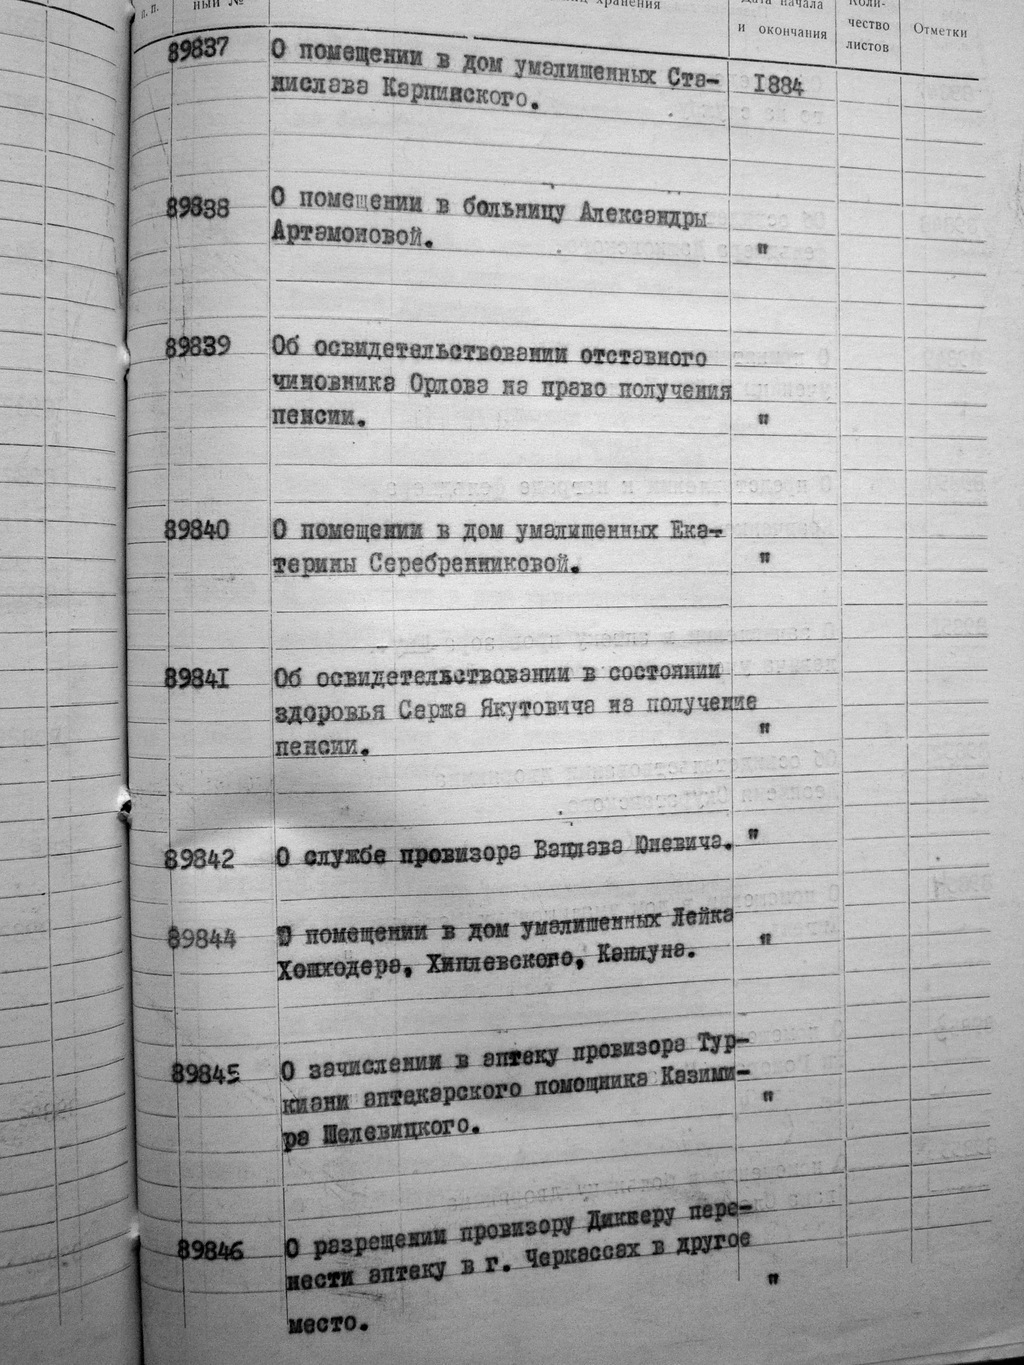 п.п.
ный №
хранения
Дата начала
и окончания
Коли-
чество
листов
Отметки
89837 О помещении в дом умалишенных Ста-
нислава Карпинского. 1884
89838 О помещении в больницу Александры
Артамоновой. "
89839 Об освидетельствовании отставного
чиновника Орлова на право получения
пенсии. "
89840 О помещении в дом умалишенных Ека-
терины Серебренниковой. "
89841 Об освидетельствовании в состоянии
здоровья Сержа Якутовича на получение
пенсии. "
89842 О службе провизора Вацлава Юневича. "
89844 О помещении в дом умалишенных Лейка
Хошходера, Хиплевского, Каплуна. "
89845 О зачислении в аптеку провизора Тур-
киани аптекарского помощника Казими-
ра Шелевицкого. "
89846 О разрещении провизору Диккеру пере-
нести аптеку в г. Черкассах в другое
место. "